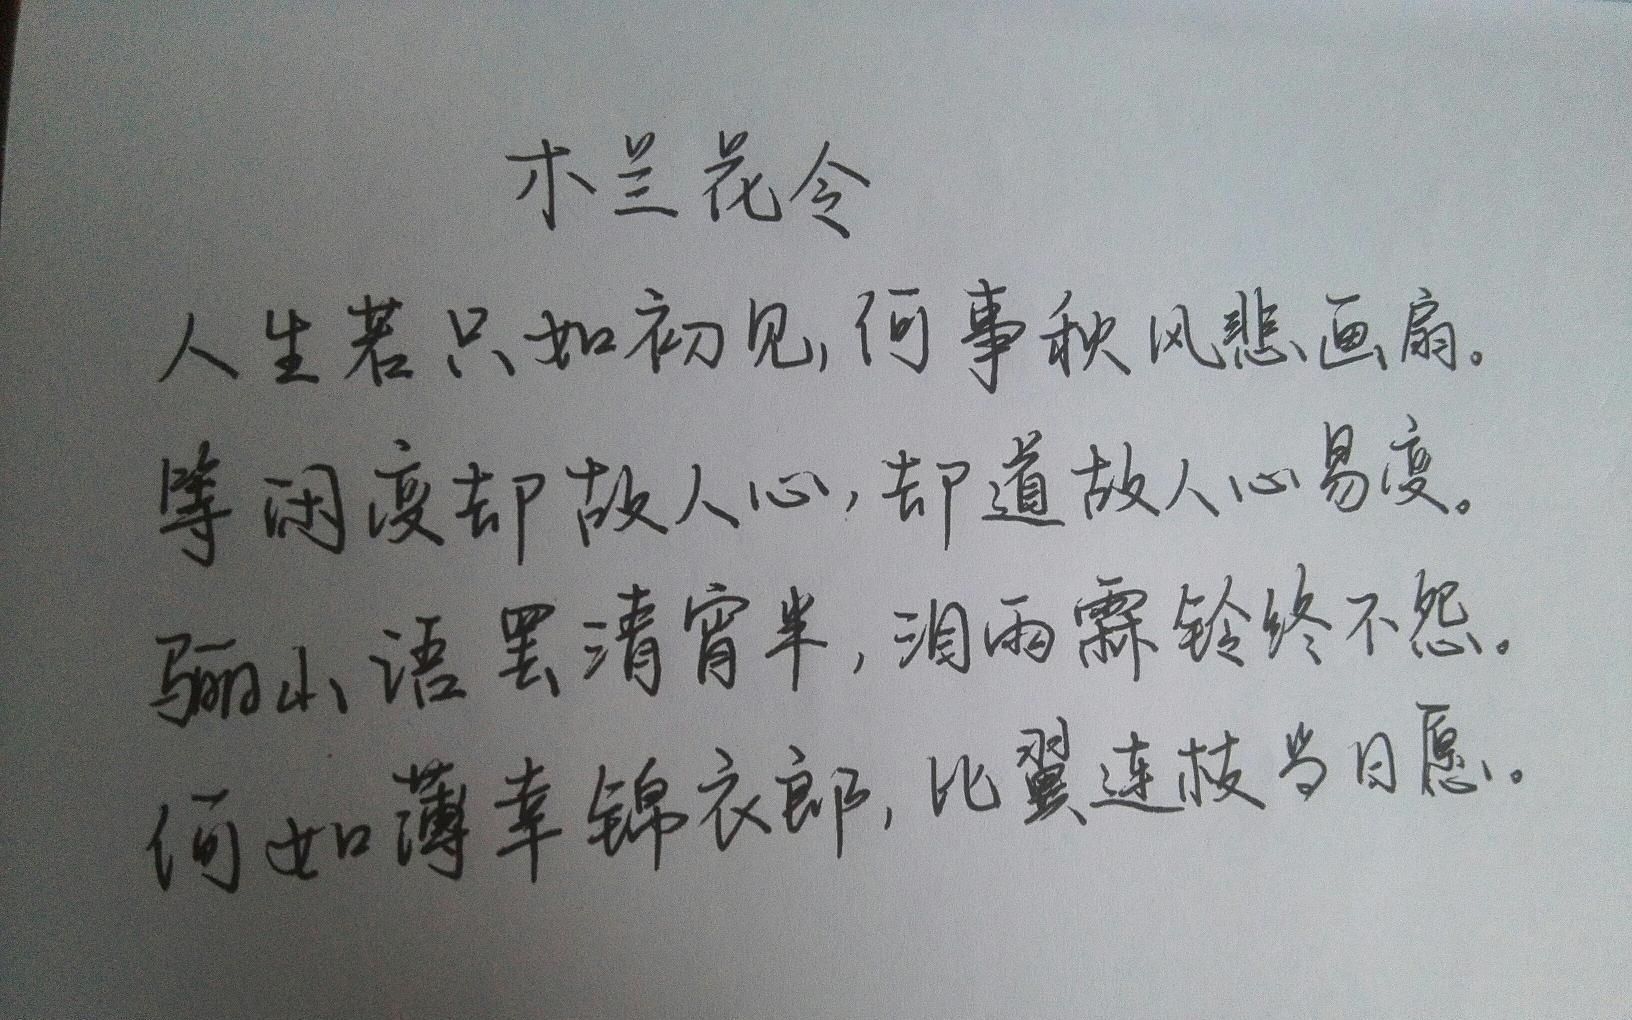 木兰花令
人生若只如初见,何事秋风悲画扇。
等闲变却故人心,却道故人心易变。
骊山语罢清宵半,泪雨霖铃终不怨。
何如薄幸锦衣郎,比翼连枝当日愿。